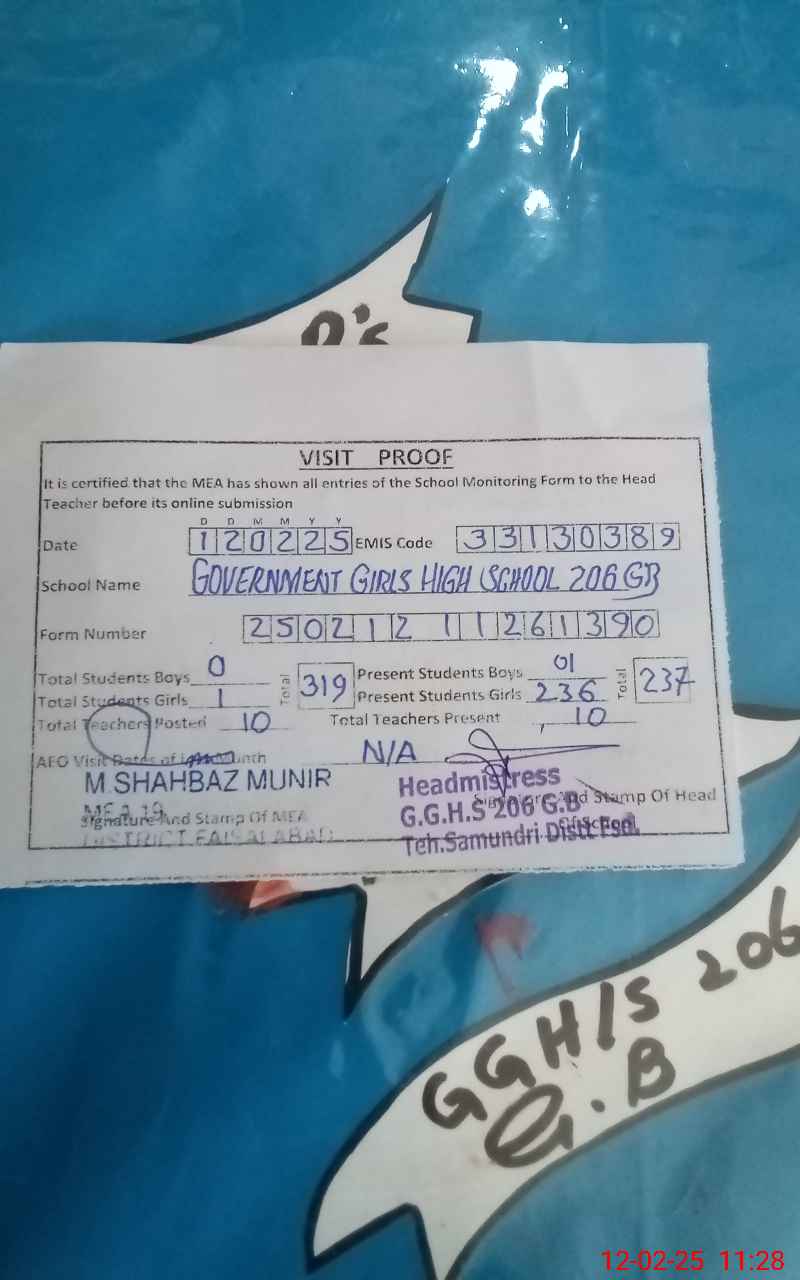 VISIT PROOF
It is certified that the MEA has shown all entries of the School Monitoring Form to the Head
Teacher before its online submission
D D M M Y Y
Date 120225 EMIS Code 33130389
School Name GOVERNMENT GIRLS HIGH SCHOOL 206 GB
Form Number 250212 11261390
Total Students Boys 0 Total 319 Present Students Boys 01 Total 237
Total Students Girls 1 Present Students Girls 236
Total Teachers Posted 10 Total Teachers Present 10
AEO Visit Dates of Month N/A
M.SHAHBAZ MUNIR
Signature And Stamp Of MEA
DISTRICT FAISALABAD
Headmistress
G.G.H.S 206 G.B
Teh.Samundri Distt Fsd.
And Stamp Of Head
Of School
GGH/S 206
G.B
12-02-25 11:28